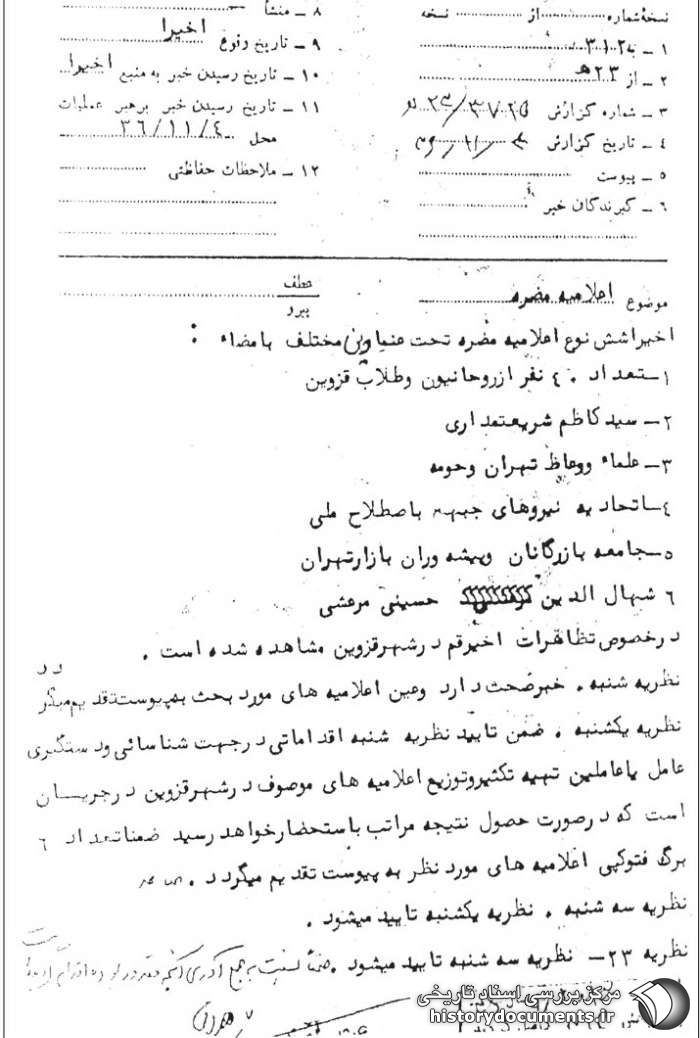 نسخهٔ شماره .......... از .......... نسخه
۱ ـ به ۳۱۲
۲ ـ از ۲۳هـ
۳ ـ شماره گزارش
۴ ـ تاریخ گزارش
۵ ـ پیوست
۶ ـ گیرندگان خبر
۸ ـ منشأ
۹ ـ تاریخ وقوع اخیرا
۱۰ ـ تاریخ رسیدن خبر به منبع اخیرا
۱۱ ـ تاریخ رسیدن خبر برهبر عملیات
محل ۳۶/۱۱/۴
۱۲ ـ ملاحظات حفاظتی
موضوع اعلامیه مضره
عطف
پیرو
اخیرا شش نوع اعلامیه مضره تحت عناوین مختلف بامضاء :
۱ـ تعداد ۴۰ نفر از روحانیون وطلاب قزوین
۲ـ سید کاظم شریعتمداری
۳ـ علماء ووعاظ تهران وحومه
۴ـ اتحادیه نیروهای جبهه باصطلاح ملی
۵ـ جامعه بازرگانان وپیشه وران بازارتهران
۶ شهال الدین حسینی مرعشی
درخصوص تظاهرات اخیرقم درشهرقزوین مشاهده شده است .
نظریه شنبه . خبرصحت دارد وعین اعلامیه های مورد بحث بپیوست تقدیم میگردد
نظریه یکشنبه . ضمن تایید نظریه شنبه اقداماتی درجهت شناسائی ودستگیری
عامل یاعاملین تهیه تکثیروتوزیع اعلامیه های موصوف درشهرقزوین درجریان
است که درصورت حصول نتیجه مراتب باستحضارخواهد رسید ضمناتعداد ۶
برگ فتوکپی اعلامیه های مورد نظر به پیوست تقدیم میگردد .
نظریه سه شنبه . نظریه یکشنبه تایید میشود .
نظریه ۲۳ـ نظریه سه شنبه تایید میشود .
مرکز بررسی اسناد تاریخی
historydocuments.ir